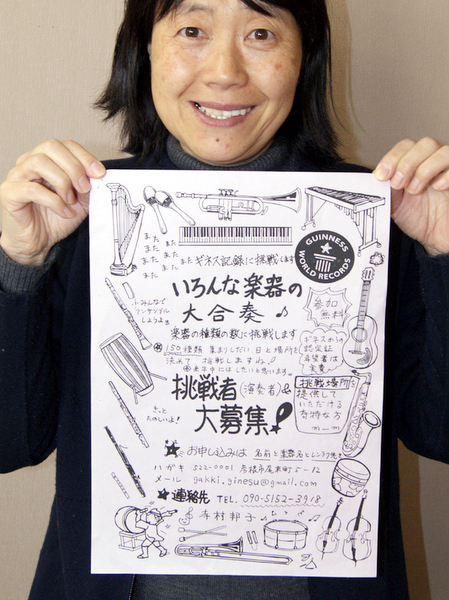 また また また また また また また ギネス記録に挑戦します
GUINNESS
WORLD RECORDS
いろんな楽器の
大合奏♪
トみんなで
アンサンブル
しようよ
参加
無料
楽器の種類の数に挑戦します
150種類 集まりしだい 日と場所を
決めて 挑戦しますね
来年中にはしたいと思います。
ギネスからの
認定証
希望者は
実費
挑戦者(演奏者)&
大募集!
挑戦場所を
提供して
いただける
奇特な方
m—m
きっと
たのしいよ!
お申し込みは 名前と楽器名とレンラク先を
ハガキ 522-0001 彦根市尾末町5-12
メール gakki.ginesu@gmail.com
連絡先 TEL. 090-5152-3918
寺村邦子